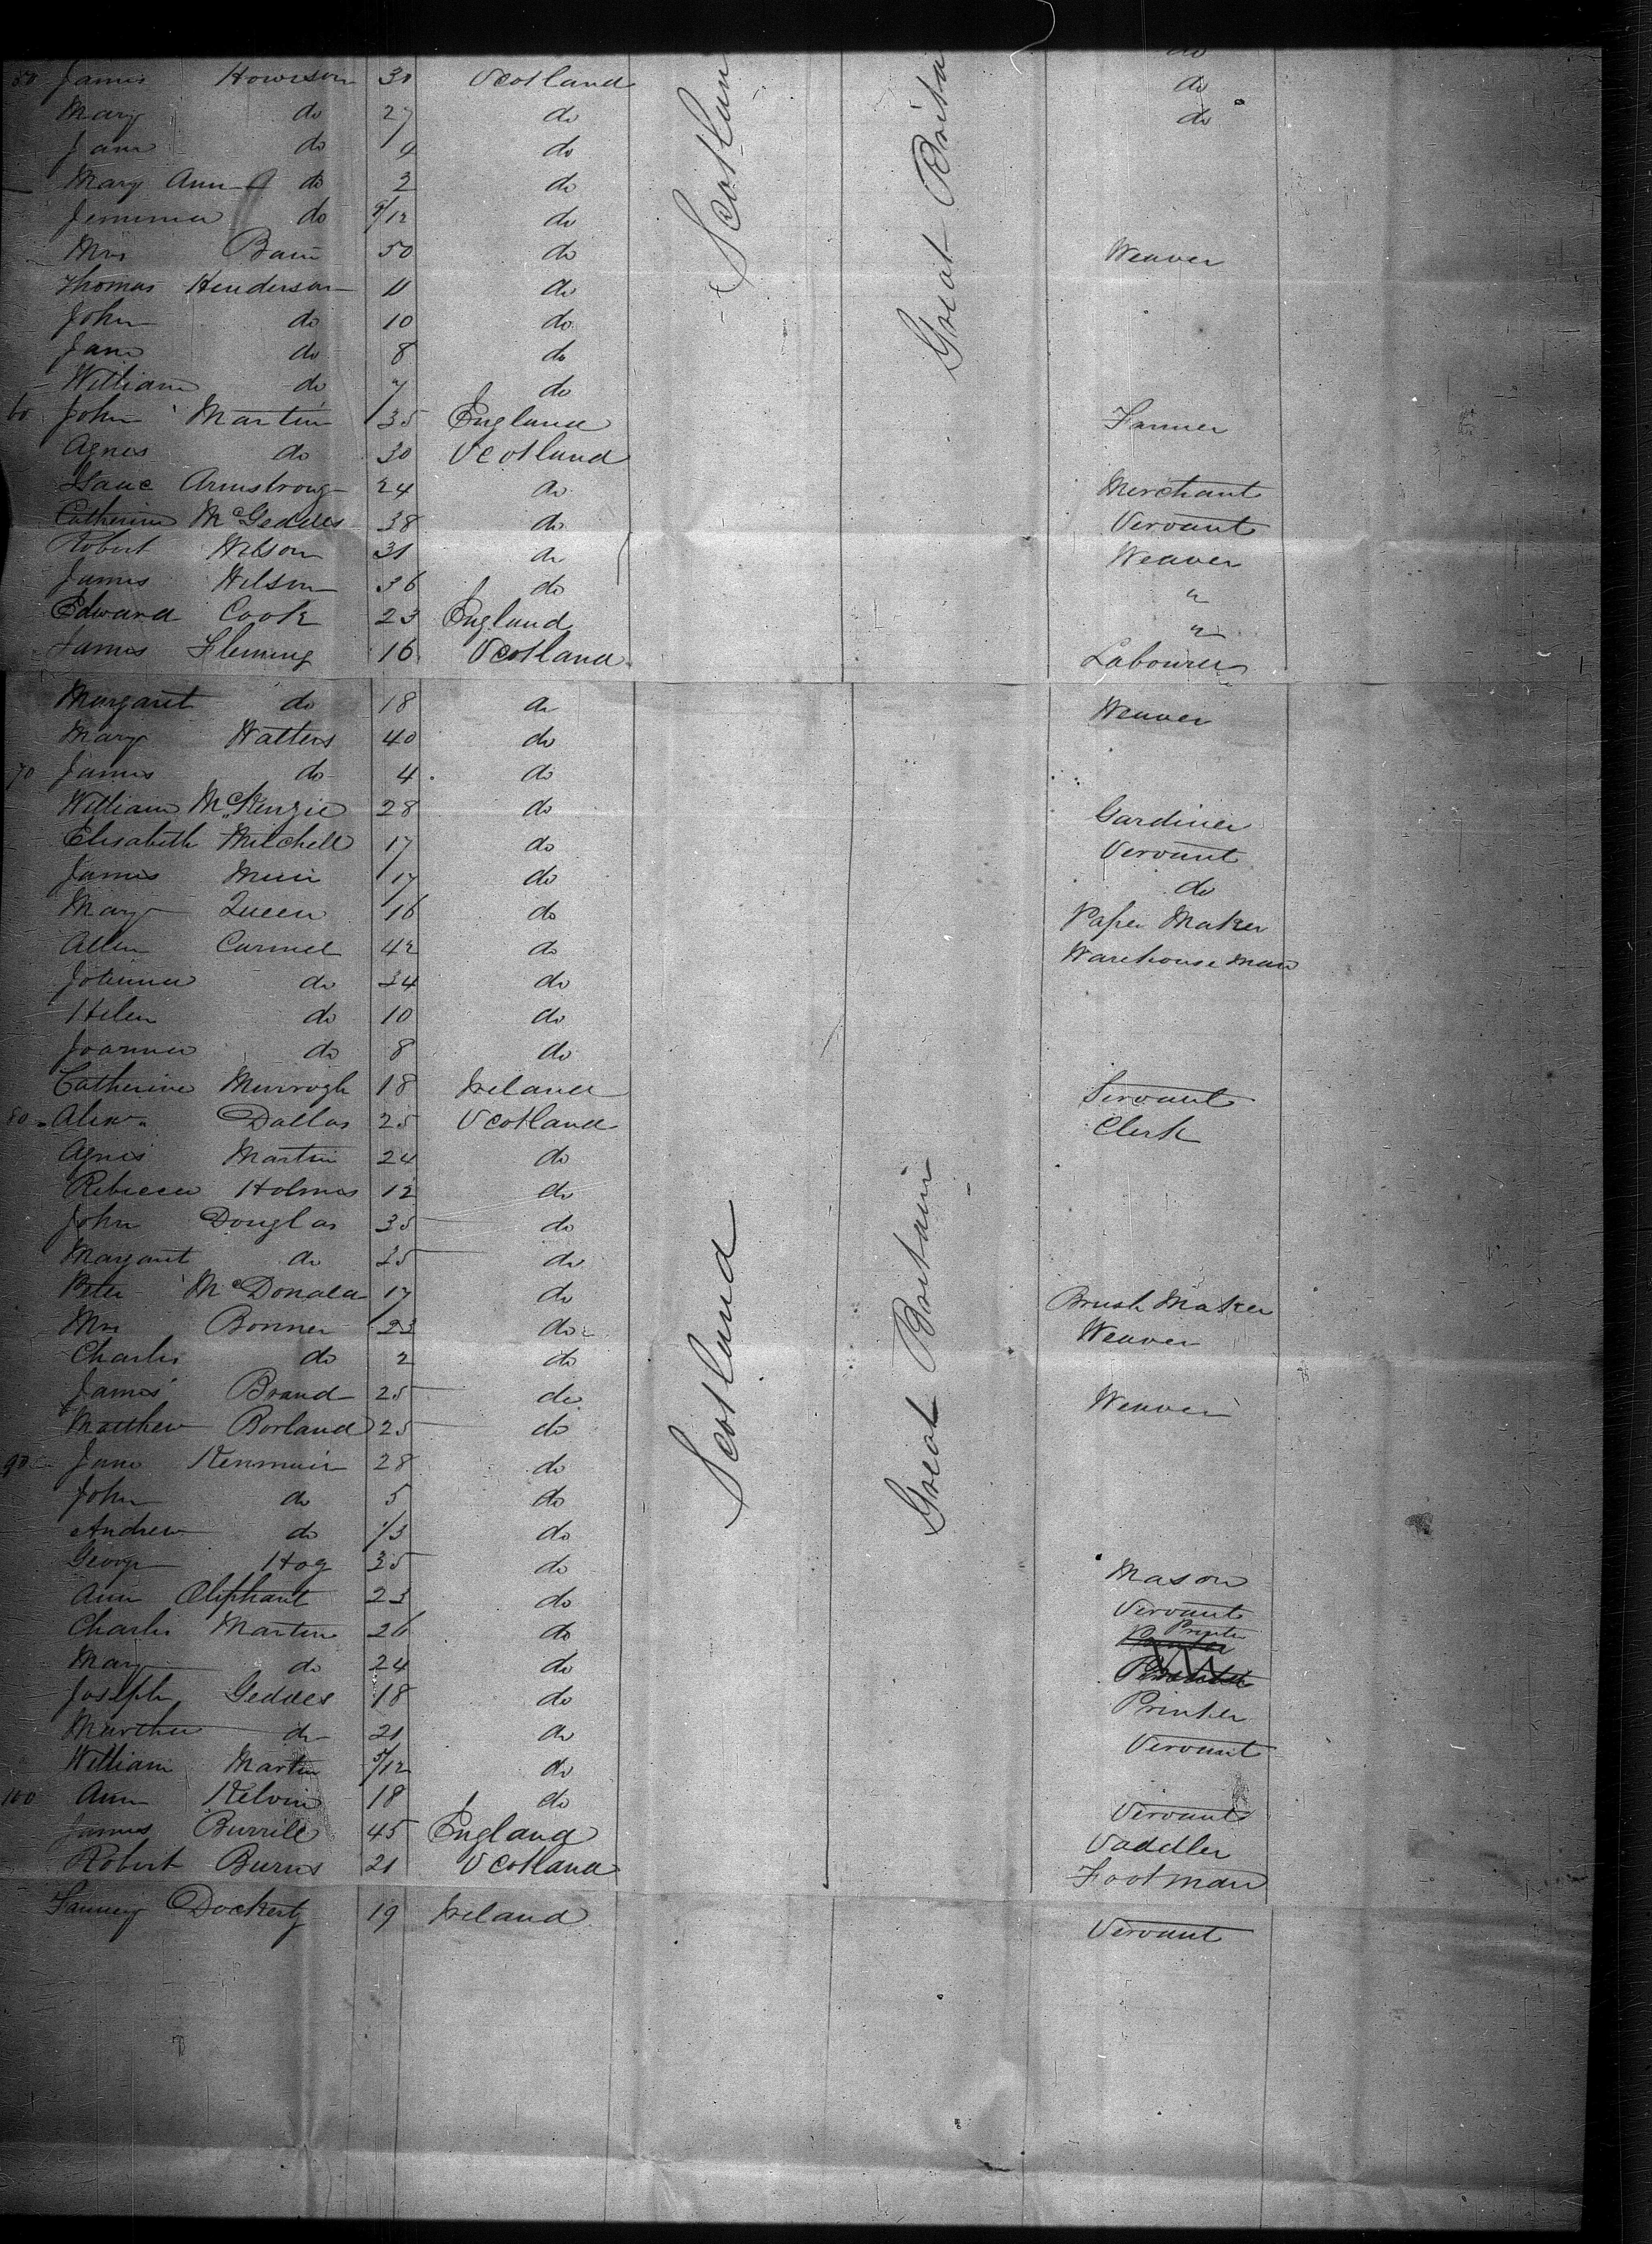 do
50 James Howison 30 Scotland do
Mary do 27 do do
Jane do 4 do
Mary Ann do 2 do
Jemima do 9/12 do
Mrs Bain 50 do Weaver
Thomas Henderson 11 do
John do 10 do
Jane do 8 do
William do 7 do
Scotlan
Great Brita
60 John Martin 35 England Farmer
Agnes do 30 Scotland
Isaac Armstrong 24 do Merchant
Catherine McGeddes 38 do Servant
Robert Wilson 31 do Weaver
James Wilson 36 do "
Edward Cook 23 England "
James Fleming 16 Scotland Labourer
Margaret do 18 do Weaver
Mary Watters 40 do
70 James do 4 do
William McKenzie 28 do Gardiner
Elisabeth Mitchell 17 do Servant
James Muir 17 do do
Mary Queen 16 do Paper Maker
Allen Carmel 42 do Warehouse Man
Johanna do 34 do
Helen do 10 do
Joanna do 8 do
Catherine Murrogh 18 Ireland Servant
80 Alexr. Dallas 25 Scotland Clerk
Agnes Martin 24 do
Rebecca Holmes 12 do
John Douglas 35 do
Margaret do 35 do
Peter McDonald 17 do Brush Maker
Mrs Bonner 23 do Weaver
Charles do 2 do
James Brand 25 do Weaver
Matthew Borland 25 do
Scotland
Great Britain
90 Jane Kenmuir 28 do
John do 5 do
Andrew do 1/3 do
George Hog 35 do Mason
Ann Oliphant 23 do Servant
Charles Martin 26 do Printer
Mary do 24 do
Joseph Geddes 18 do Printer
Martha do 21 do Servant
William Martin 5/12 do
100 Ann Kelvin 18 do Servant
James Burrill 45 England Saddler
Robert Burns 21 Scotland Footman
Fanny Dockerty 19 Ireland Servant